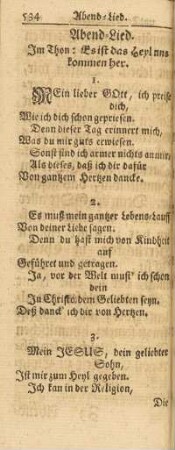 534 Abend-Lied.
Abend-Lied.
Im Thon: Es ist das Heyl uns
kommen her.
1.
MEin lieber GOtt, ich preise
dich,
Wie ich dich schon gepriesen.
Denn dieser Tag erinnert mich,
Was du mir guts erwiesen.
Sonst find ich armer nichts an mir,
Als dieses, daß ich dir dafür
Von gantzem Hertzen dancke.
2.
Es muß mein gantzer Lebens-Lauff
Von deiner Liebe sagen.
Denn du hast mich von Kindheit
auf
Geführet und getragen.
Ja, vor der Welt muß ich schon
dein
In Christo dem Geliebten seyn.
Deß danck ich dir von Hertzen.
3.
Mein JESUS, dein geliebter
Sohn,
Ist mir zum Heyl gegeben.
Ich kan in der Religion,
Die